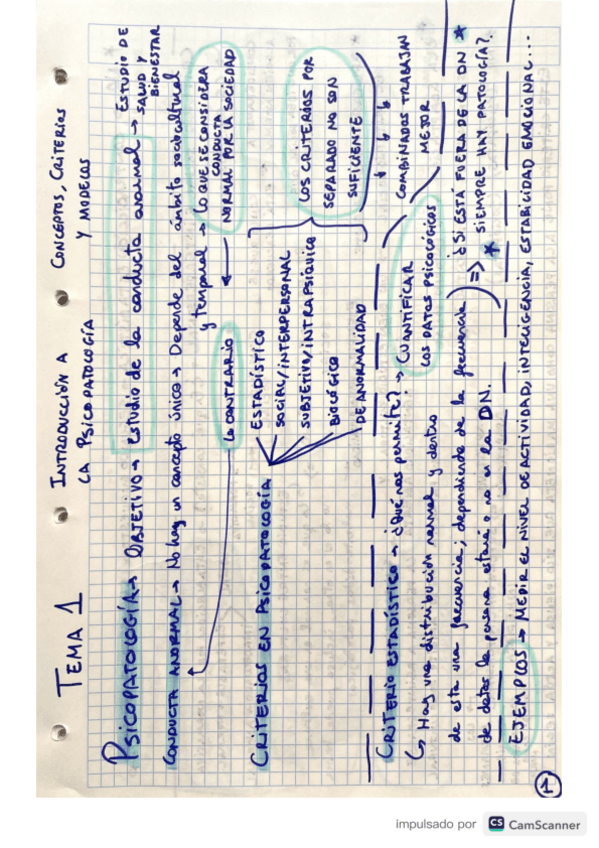 TEMA 1
INTRODUCCIÓN A
LA PSICOPATOLOGÍA
CONCEPTOS, CRITERIOS
Y MODELOS
PSICOPATOLOGÍA → OBJETIVO → Estudio de la conducta anormal → ESTUDIO DE
SALUD Y
BIENESTAR
CONDUCTA ANORMAL → No hay un concepto único → Depende del ámbito sociocultural
y temporal → LO QUE SE CONSIDERA
CONDUCTA
NORMAL POR LA SOCIEDAD
LO CONTRARIO
CRITERIOS EN PSICOPATOLOGÍA
ESTADÍSTICO
SOCIAL/INTERPERSONAL
SUBJETIVO/INTRAPSÍQUICO
BIOLÓGICO
DE ANORMALIDAD
LOS CRITERIOS POR
SEPARADO NO SON
SUFICIENTE
COMBINADOS TRABAJAN
MEJOR
CRITERIO ESTADÍSTICO → ¿Qué nos permite? → CUANTIFICAR
LOS DATOS PSICOLÓGICOS
↳ Hay una distribución normal y dentro
de esta una frecuencia; dependiendo de la frecuencia
de datos la persona estará o no en la DN.
⇒ ¿SI ESTÁ FUERA DE LA DN *
* SIEMPRE HAY PATOLOGÍA?.
EJEMPLOS → MEDIR EL NIVEL DE ACTIVIDAD, INTELIGENCIA, ESTABILIDAD EMOCIONAL...
1
impulsado por CS CamScanner